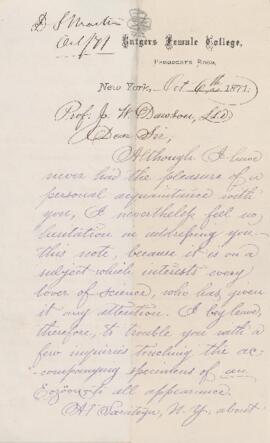 D S Martin
Oct/71
Rutgers Female College,
President's Room,
New York, Oct 6th 1871.
Prof. J. W. Dawson, LLD
Dear Sir,
Although I have
never had the pleasure of a
personal acquaintance with
you, I nevertheless feel no
hesitation in addressing you
this note, because it is on a
subject which interests every
lover of Science, who has given
it any attention. I beg leave,
therefore, to trouble you with a
few inquiries touching the ac-
companying specimens of an
Eozöon to all appearance.
At Saratoga, N. Y. about